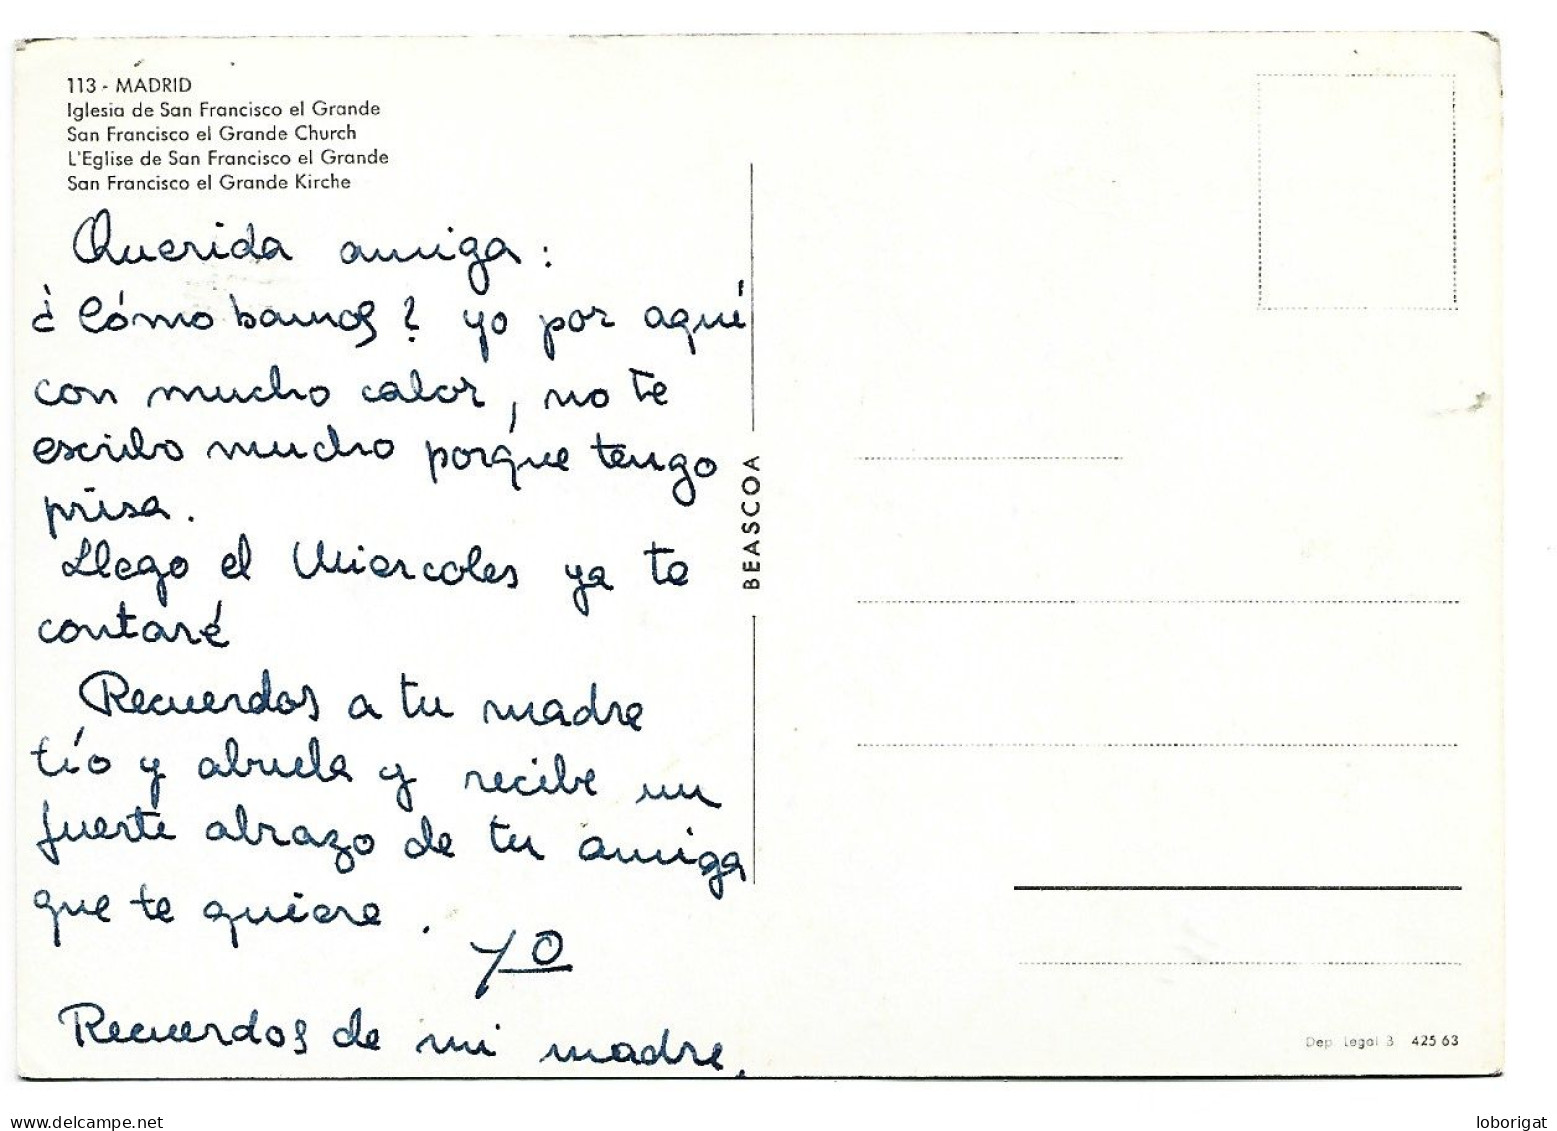 113 - MADRID
Iglesia de San Francisco el Grande
San Francisco el Grande Church
L'Eglise de San Francisco el Grande
San Francisco el Grande Kirche
Querida amiga :
¿Cómo bamos? yo por aquí
con mucho calor, no te
escribo mucho porque tengo
prisa.
Llego el Miercoles ya te
contaré
Recuerdos a tu madre
tío y abuela y recibe un
fuerte abrazo de tu amiga
que te quiere.
YO
Recuerdos de mi madre.
BEASCOA
Dep. Legal B 425 63
www.delcampe.net
loborigat